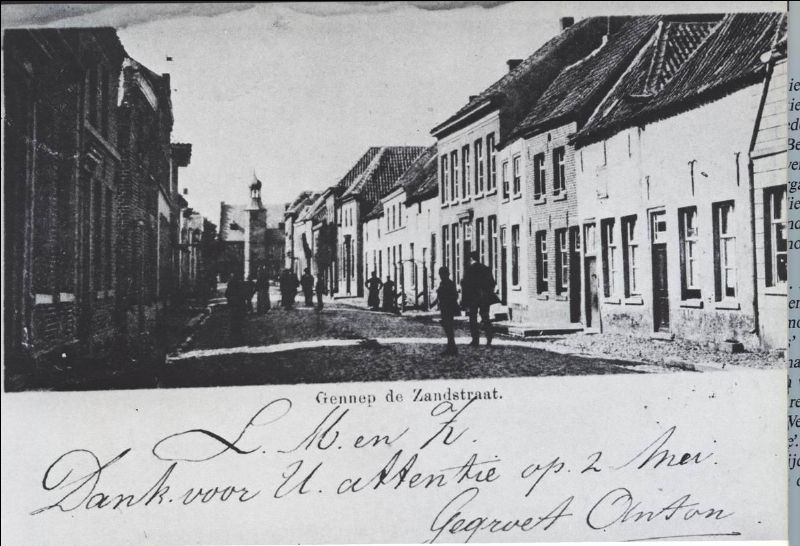 Gennep de Zandstraat.
L. M. en Z.
Dank voor U. attentie op 2 Mei.
Gegroet Anton